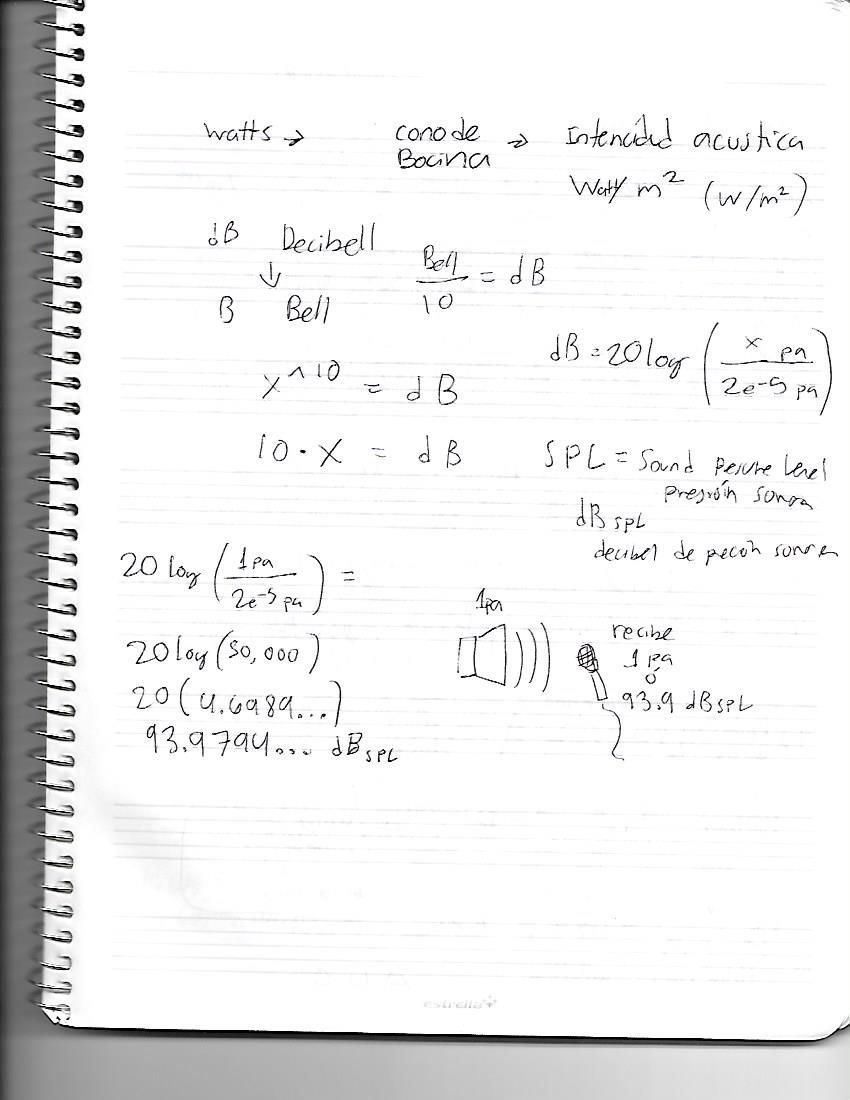 watts → cono de → Intencidad acustica
Bocina
Watt/m² (W/m²)
dB Decibell
↓
B Bell
Bell/10 = dB
dB = 20 log (x pa / 2e⁻⁵ pa)
x^10 = dB
10 · x = dB
SPL = Sound Level
Presión sonora
dB SPL
decibel de
20 log (1 pa / 2e⁻⁵ pa) =
20 log (50,000)
20 (4.6989...)
93.9794... dB SPL
1pa
recibe
1 pa
ó
93.9 dB SPL
estrella